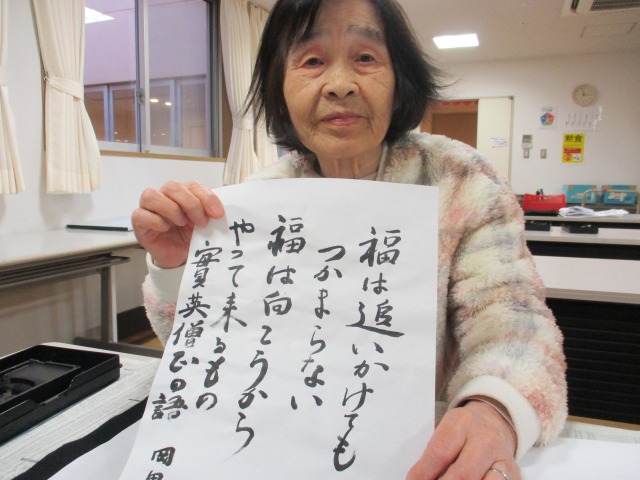 福は追いかけても
つかまらない
福は向こうから
やって来るもの
實英僧正の語
岡
黙食